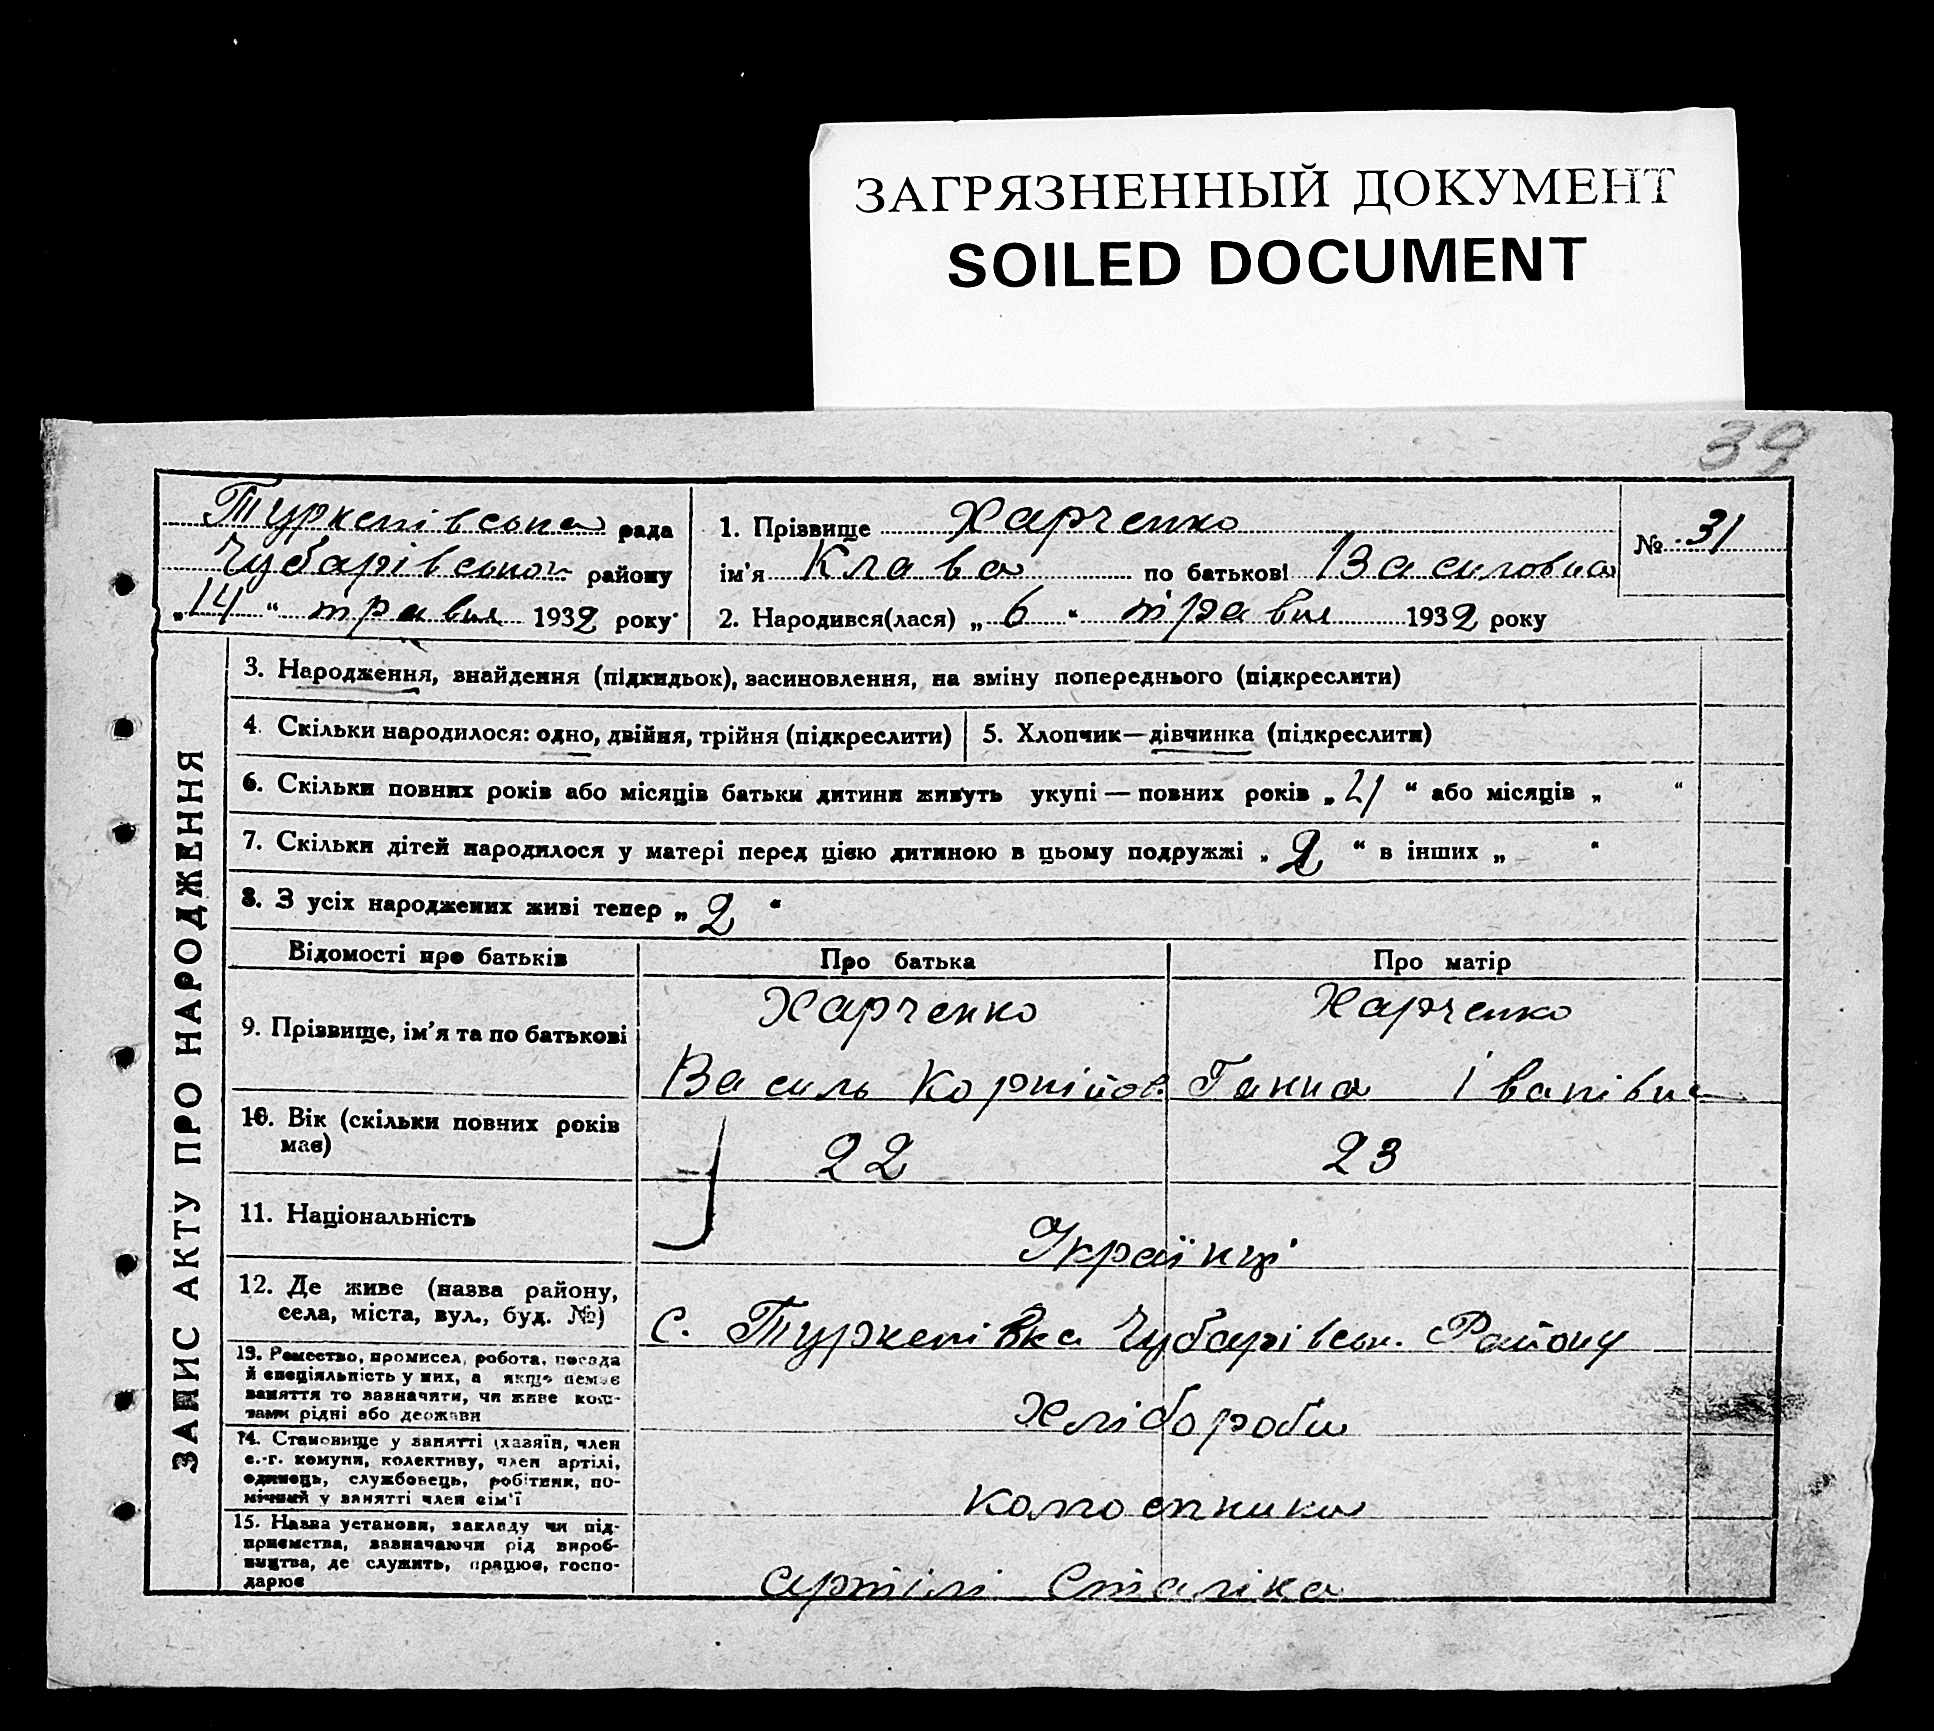 ЗАГРЯЗНЕННЫЙ ДОКУМЕНТ
SOILED DOCUMENT
39
Туркенівська рада
Чубарівськог району
„14“ травня 1932 року
1. Прізвище Харченко
ім'я Клава по батькові Василовна
№ 31
2. Народився(лася) „6“ травня 1932 року
ЗАПИС АКТУ ПРО НАРОДЖЕННЯ
3. Народження, знайдення (підкидьок), засиновлення, на зміну попереднього (підкреслити)
4. Скільки народилося: одно, двійня, трійня (підкреслити)
5. Хлопчик—дівчинка (підкреслити)
6. Скільки повних років або місяців батьки дитини живуть укупі — повних років „4“ або місяців „ “
7. Скільки дітей народилося у матері перед цією дитиною в цьому подружжі „2“ в інших „ “
8. З усіх народжених живі тепер „2“
Відомості про батьків
Про батька
Про матір
9. Прізвище, ім'я та по батькові
Харченко
Василь Корнійов.
Харченко
Ганна Іванівна
10. Вік (скільки повних років
має)
22
23
11. Національність
Українці
12. Де живе (назва району,
села, міста, вул., буд. №)
с. Туркенівка Чубарівськ. Району
13. Ремество, промисел, робота, посада
й спеціяльність у них, а якщо немає
заняття то зазначати, чи живе кош-
тами рідні або держави
Хлібороби
14. Становище у занятті (хазяїн, член
с.-г. комуни, колективу, член артілі,
одинець, службовець, робітник, по-
мічний у занятті член сім'ї
колгоспники
15. Назва установи, закладу чи під-
приємства, зазначаючи рід вироб-
ництва, де служить, працює, госпо-
дарює
артілі Сталіна